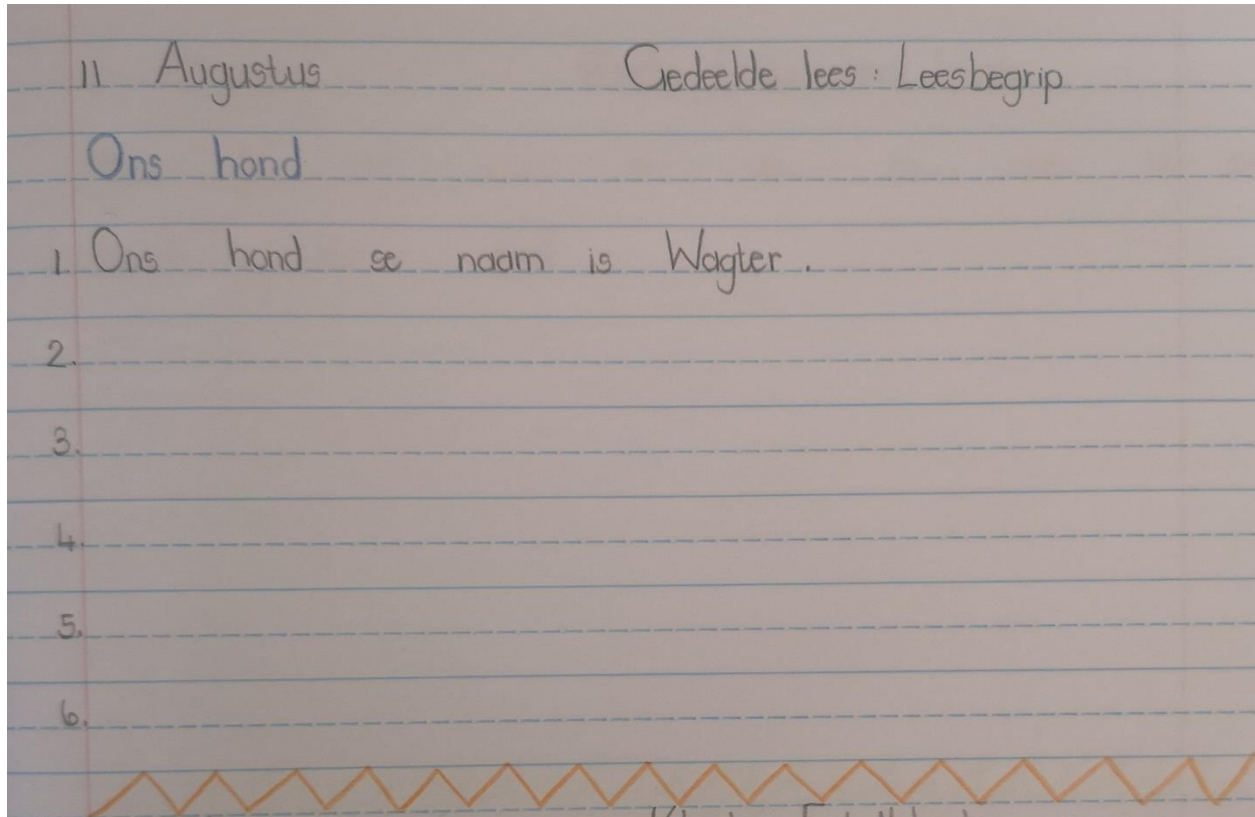 11 Augustus Gedeelde lees : Leesbegrip
Ons hond
1. Ons hond se naam is Wagter.
2.
3.
4.
5.
6.